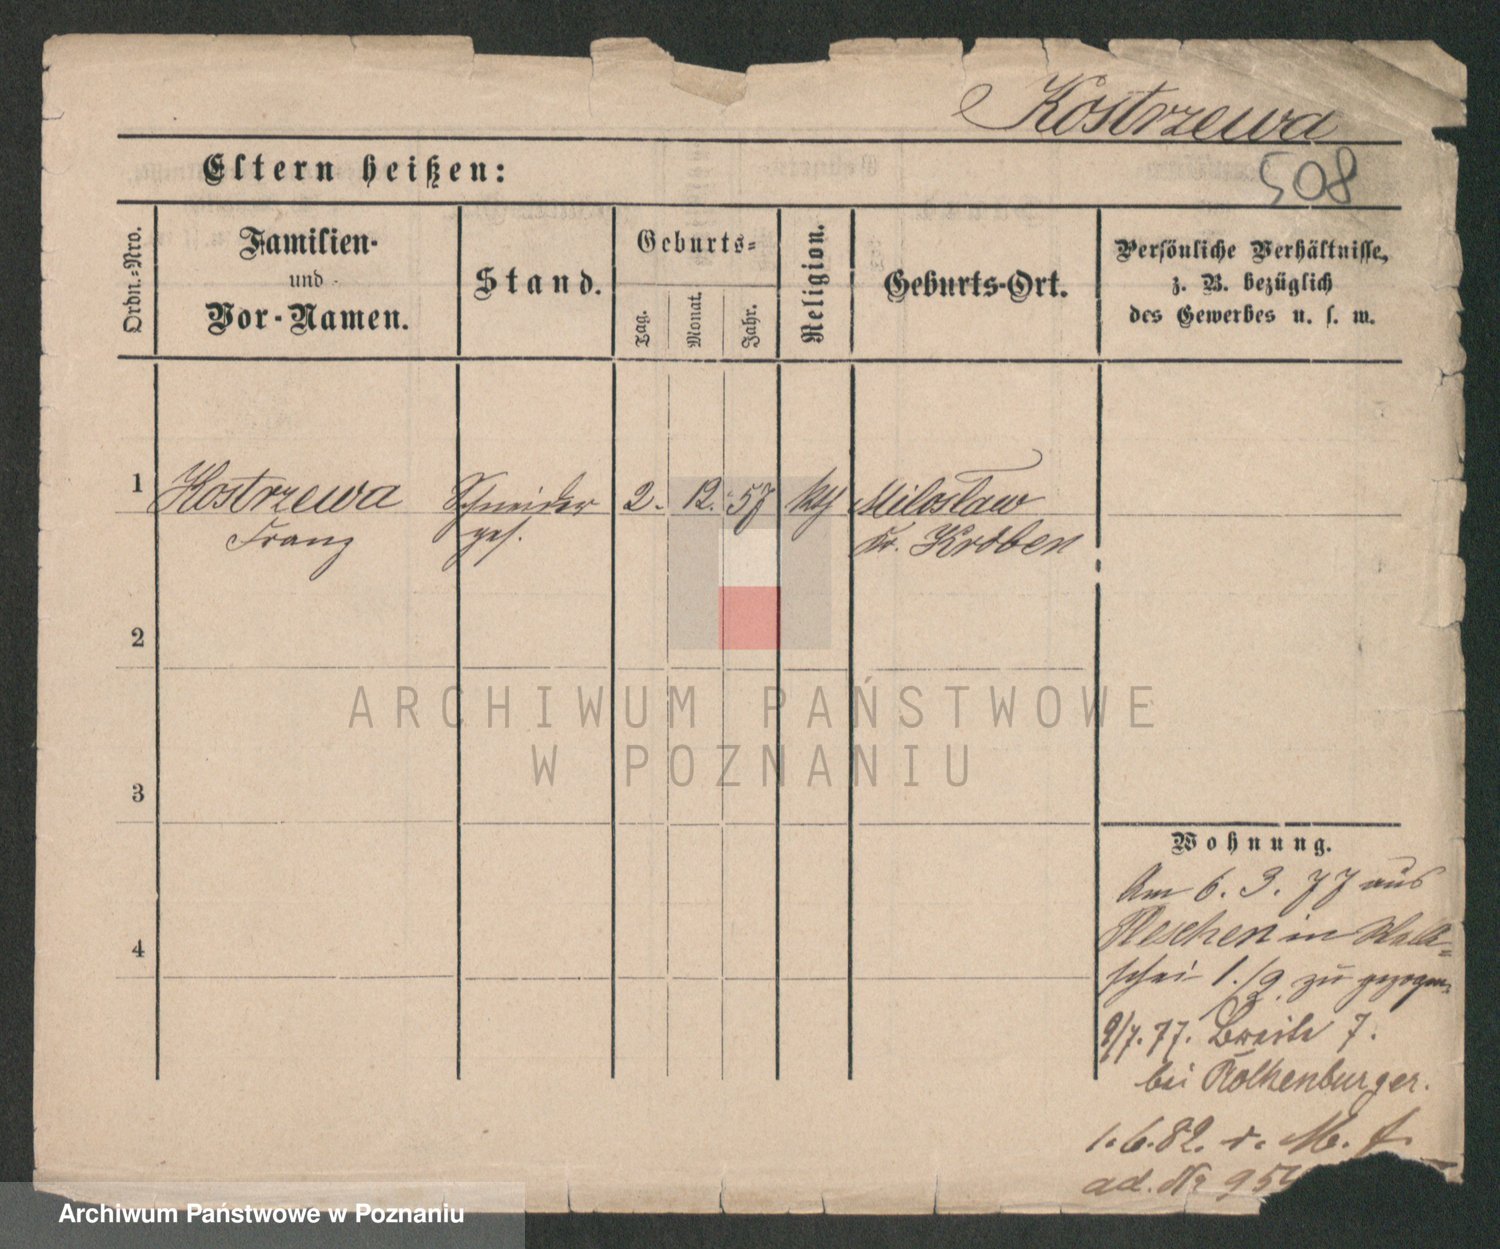 Kostrzewa
508
Eltern heißen:
Ordn.-Nro.
Familien-
und
Vor-Namen.
Stand.
Geburts-
Tag.
Monat.
Jahr.
Religion.
Geburts-Ort.
Persönliche Verhältnisse,
z. B. bezüglich
des Gewerbes u. s. w.
1 Kostrzewa Schneider 2. 12. 57 kth Miloslaw
Franz ges. Kr. Kröben
2
3
4
ARCHIWUM PAŃSTWOWE
W POZNANIU
Wohnung.
Am 6. 3. 77 aus
Pleschen in Wall-
schei 1./2. zu gezogen.
9/7. 77. Breite 7.
bei Rothenburger.
1. 6. 82. v. M. f.
ad. No 95
Archiwum Państwowe w Poznaniu